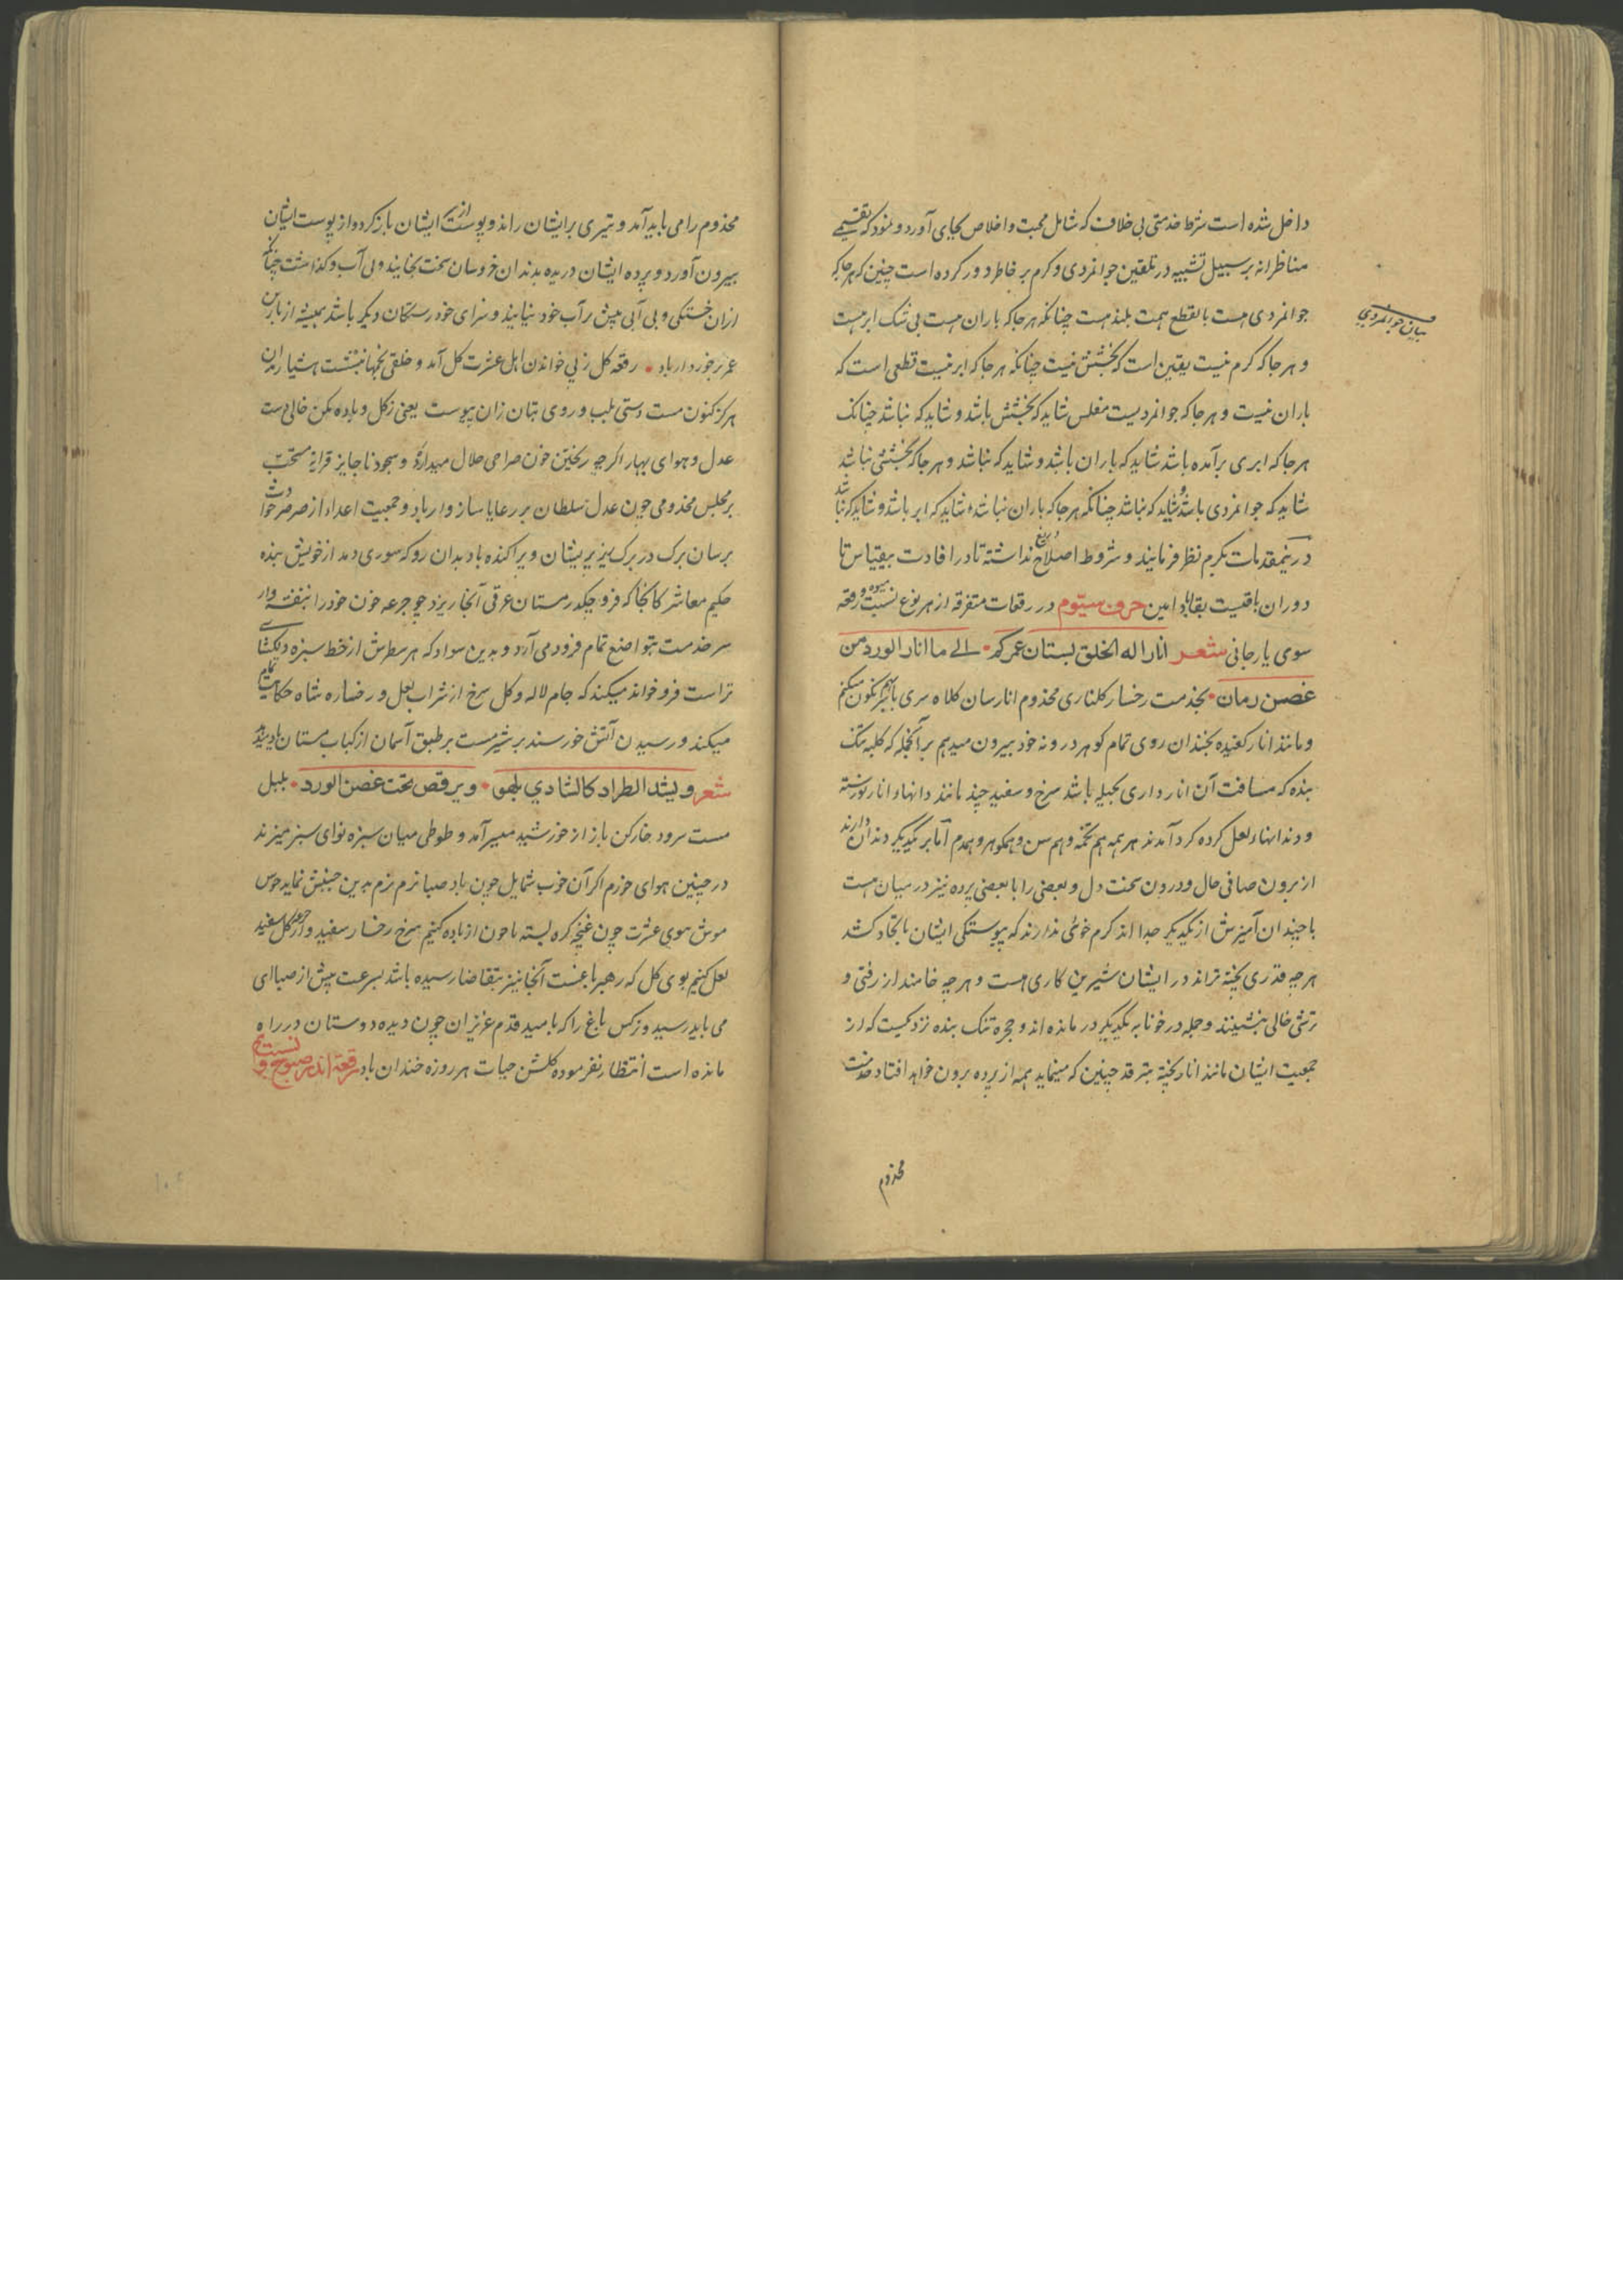 داخل شده است شرط خدمتی بی خلاف که شامل محبت و اخلاص بجای آورد و نمود که تقسیمی
مناظرانه بر سبیل تشبیه در تلقین جوانمردی و کرم بر خاطر دور کرده است چنین که هر جا که
جوانمردی هست بالقطع همت بلند هست چنانکه هر جا که باران هست بی شک ابر هست
بیان جوانمردی
و هر جا که کرم نیست یقین است که بخشش نیست چنانکه هر جا که ابر نیست قطعی است که
باران نیست و هر جا که جوانمردیست مفلس شاید که بخشش باشد و شاید که نباشد چنانک
هر جا که ابری برآمده باشد شاید که باران باشد و شاید که نباشد و هر جا که بخششی نباشد
شاید که جوانمردی باشد و شاید که نباشد چنانکه هر جا که باران نباشد شاید که ابر باشد و شاید که نباشد
درینمقدمات بکرم نظر فرمایند و شروط اصلاح نداشته تا در افادت بیقیاس تا
دوران باقیست بقا باد امین حرف سیّوم در رقعات متفرقه از هر نوع نسبت رقعه
سوی یار جانی شعر انار اله الخلق بستان عمرکم • الی ما انار الورد من
غصن رمان • بخدمت رخسار کلناری مخدوم انارسان کلاه سری با نگون میکنم
و مانند انار کفیده بخندان روی تمام کوهر درونه خود بیرون میدهم برانجمله که کلبه تنگ
بنده که مسافت آن انارداری بحیله باشد سرخ و سفید چند مانند دانهاء انار نو رسته
و دندانهاء لعل کرده کرد آمدند هر همه هم تخمه و هم سن و همکوهر و همدم اما بر یکدیکر دندان دارند
از برون صافی حال و درون سخت دل و بعضی را با بعضی پرده نیز در میان هست
با چندان آمیزش از یکدیکر جدا اند کرم خوئی ندارند که پیوستکی ایشان باتحاد کشد
هر چه قدری پخته تراند در ایشان شیرین کاری هست و هر چه خامند از رفتی و
ترشی خالی ننشینند و جمله در خونا بر یکدیکر در مانده اند و حجره تنک بنده نزدیکست که از
جمعیت ایشان مانند انار پخته بترقد چنین که مینماید همه از پرده برون خواهد افتاد خدمت
مخدوم
مخدوم را می باید آمد و تیری بر ایشان راند و پوست از ایشان باز کرد و از پوست ایشان
بیرون آورد و پرده ایشان دریده بدندان خروسان سخت بخایند و بی آب و کذاشت چنانکه
ازان خستکی و بی آبی پیش بر آب خود نیایند و سزای خود رستکان دیکر باشد همیشه از
عمر برخوردار باد • رقعه کل زنی خواندن اهل عشرت کل آمد و خلقی بنشست هشیاران
هر کز کنون مست دستی بلب و روی بتان زان پیوست یعنی ز کل و باده مکن خالی دست
عدل و هوای بهار اکرچه ریختن خون صراحی حلال میدارد و سجود ناجایز قرابه مستحب
بر مجلس مخدومی چون عدل سلطان بر رعایا سازوار باد و جمعیت اعداء از صرصر حوادث
برسان برک در برک ریز پریشان و پراکنده باد بدان رو که سوری دمد از خویش بنده
حکیم معاشر کانجا که فرو چکد ز مستان عرقی آنجا ریزد چو جرعه خون خود را بنفشه وار
سر خدمت بتواضع تمام فرود می آرد و بدین سواد که هر سطرش از خط سبزه دلکشای
تراست فرو خواند میکند که جام لاله و کل سرخ از شراب لعل و رخساره شاه حکایت تمام
میکند و رسیدن آتش خورسند بر شیر مست بر طبق آسمان از کباب مستان یاد میدهد
شعر و یشد الطراد کالشادی بلهو • و یرقص تحت غصن الورد • بلبل
مست سرود خارکن باز از خورشید میبر آمد و طوطی میان سبزه نوای سبز میزند
در چنین هوای خرم اکر آن خوب شمایل چون باد صبا نرم نرم بدین جنبش نماید خوس
موش سوی عشرت چون غنچه کره بسته ما خون از باده کنیم سرخ رخسار سفید و از جرعه کل سفید
لعل کنیم بوی کل که رهبر باغست آنجا نیز بتقاضا رسیده باشد بسرعت پیش از صبا ای
می باید رسید و نرکس باغ را که بامید قدم عزیزان چون دیده دوستان در راه
مانده است انتظار نفرموده کلشن حیات هر روزه خندان باد رقعه اندر صبوح و نسبت می